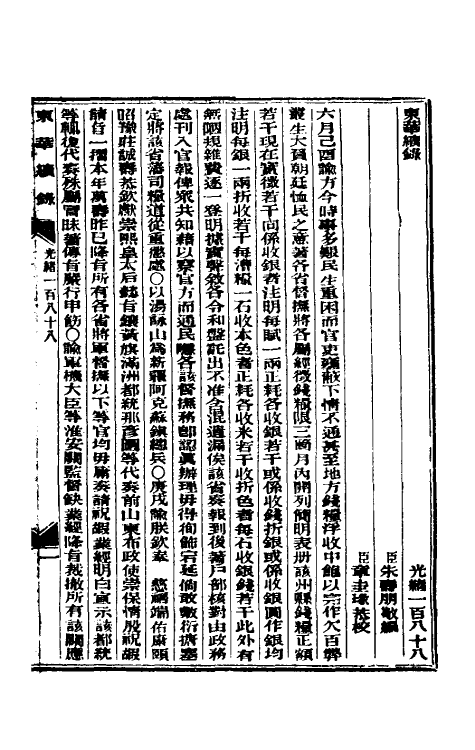 東華續錄
光緒一百八十八
臣朱壽朋敬編
臣章圭瑑恭校
六月己酉諭方今時事多艱民生重困而官吏壅蔽下情不通甚至地方錢糧浮收中飽以完作欠百弊
叢生大負朝廷恤民之意著各省督撫將各屬經徵錢糧限三個月內開列簡明表册該州縣錢糧正額
若干現在實徵若干向係收銀者注明每賦一兩正耗各收銀若干或係收錢折銀或係收銀圓作銀均
注明每銀一兩折收若干每漕糧一石收本色者正耗各收米若干收折色者每石收銀錢若干此外有
無陋規雜費逐一登明據實聲敘各令和盤託出不准含混遺漏俟該省奏報到後著戶部核對由政務
處刊入官報俾衆共知藉以察官方而通民隱各該督撫務卽認眞辦理毋得徇飾宕延倘敢敷衍搪塞
定將該省藩司糧道從重懲處〇以湯詠山爲新疆阿克蘇鎮總兵〇庚戌諭朕欽奉慈禧端佑康頤
昭豫莊誠壽恭欽獻崇熙皇太后懿旨鑲黃旗滿洲都統那彥圖等代奏前山東布政使崇保情殷祝嘏
請旨一摺本年萬壽昨已降旨所有各省將軍督撫以下等官均毋庸奏請祝嘏業經明白宣示該都統
等輒復代奏殊屬冒昧著傳旨嚴行申飭〇諭軍機大臣等淮安關監督缺業經降旨裁撤所有該關應
東華續錄
光緒一百八十八